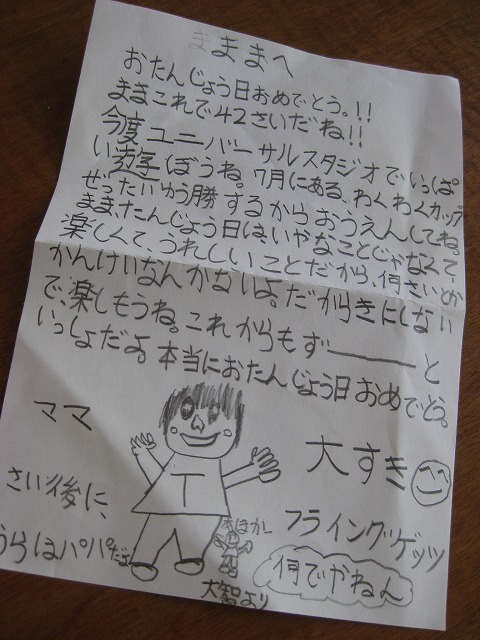 ままへ
おたんじょう日おめでとう。!!
ままこれで42さいだね!!
今度ユニバーサルスタジオでいっぱ
い遊ぼうね。7月にある、わくわくカップ
ぜったいゆう勝するからおうえんしてね。
まま、たんじょう日は、いやなことじゃなくて、
楽しくて、うれしいことだから、何さいとか
かんけいなんかないよ。だからきにしない
で、楽しもうね。これからもずーーーっと
いっしょだよ。本当におたんじょう日おめでとう。
ママ
大すき
T
さい後に、
フライングゲッツ
あほかー
うらはパパだよ
何でやねん
大智より